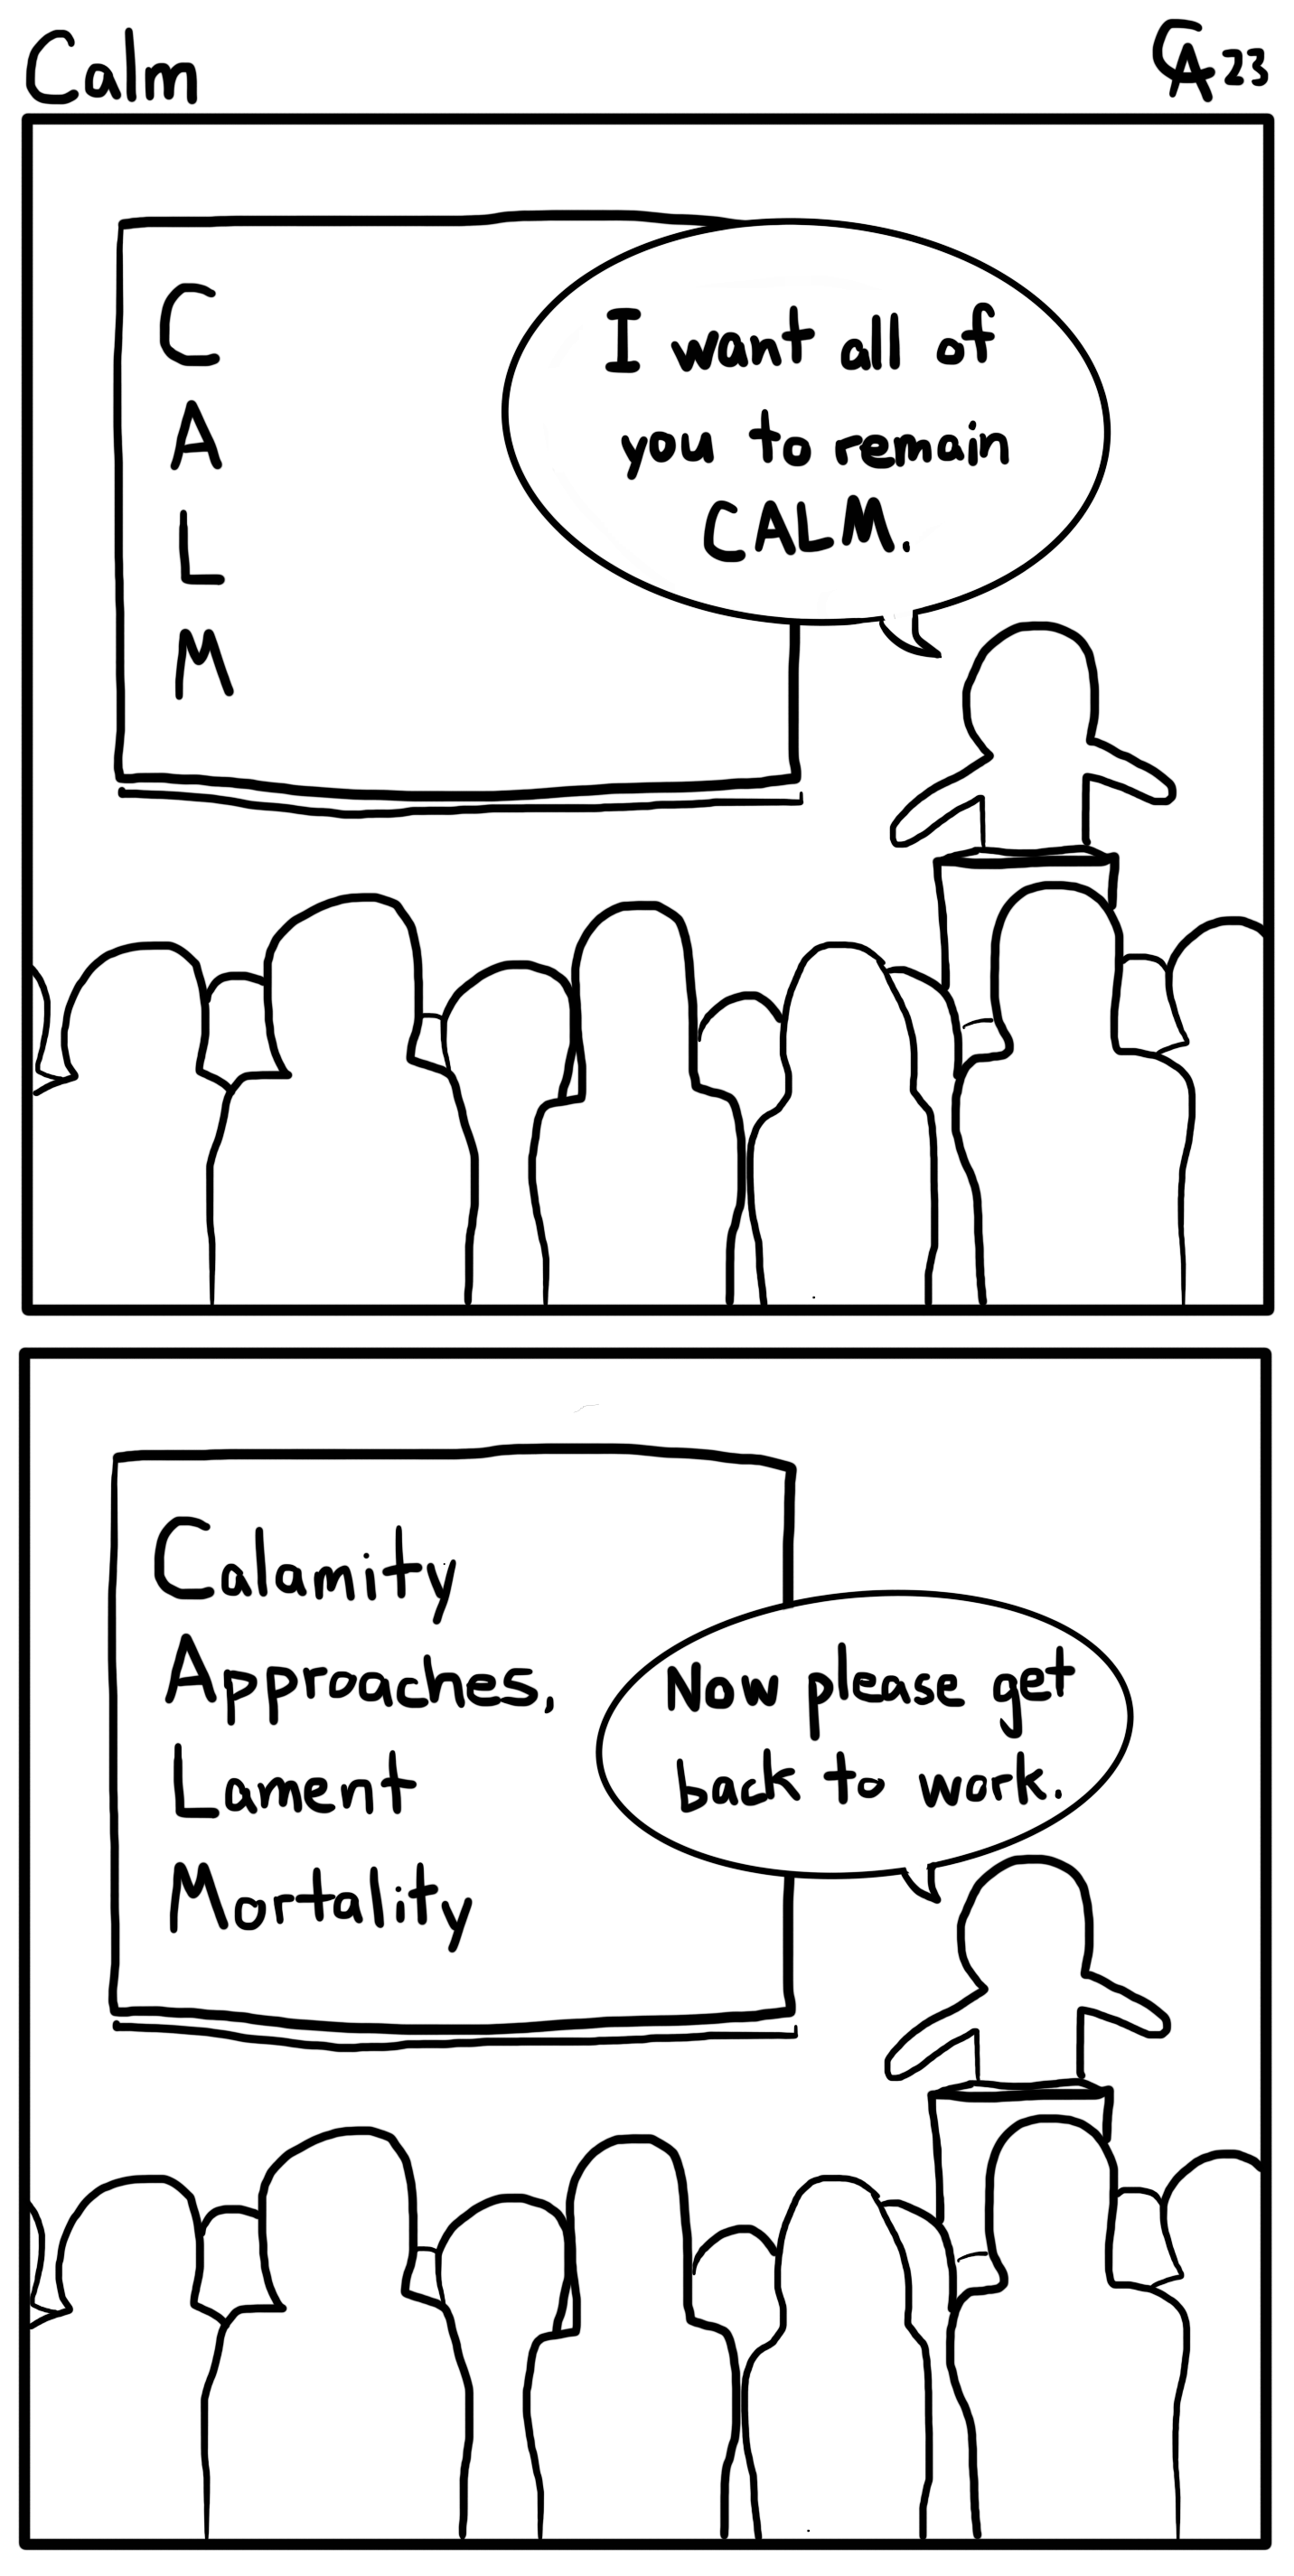 Calm
CA 23
C
A
L
M
I want all of
you to remain
CALM.
Calamity
Approaches,
Lament
Mortality
Now please get
back to work.